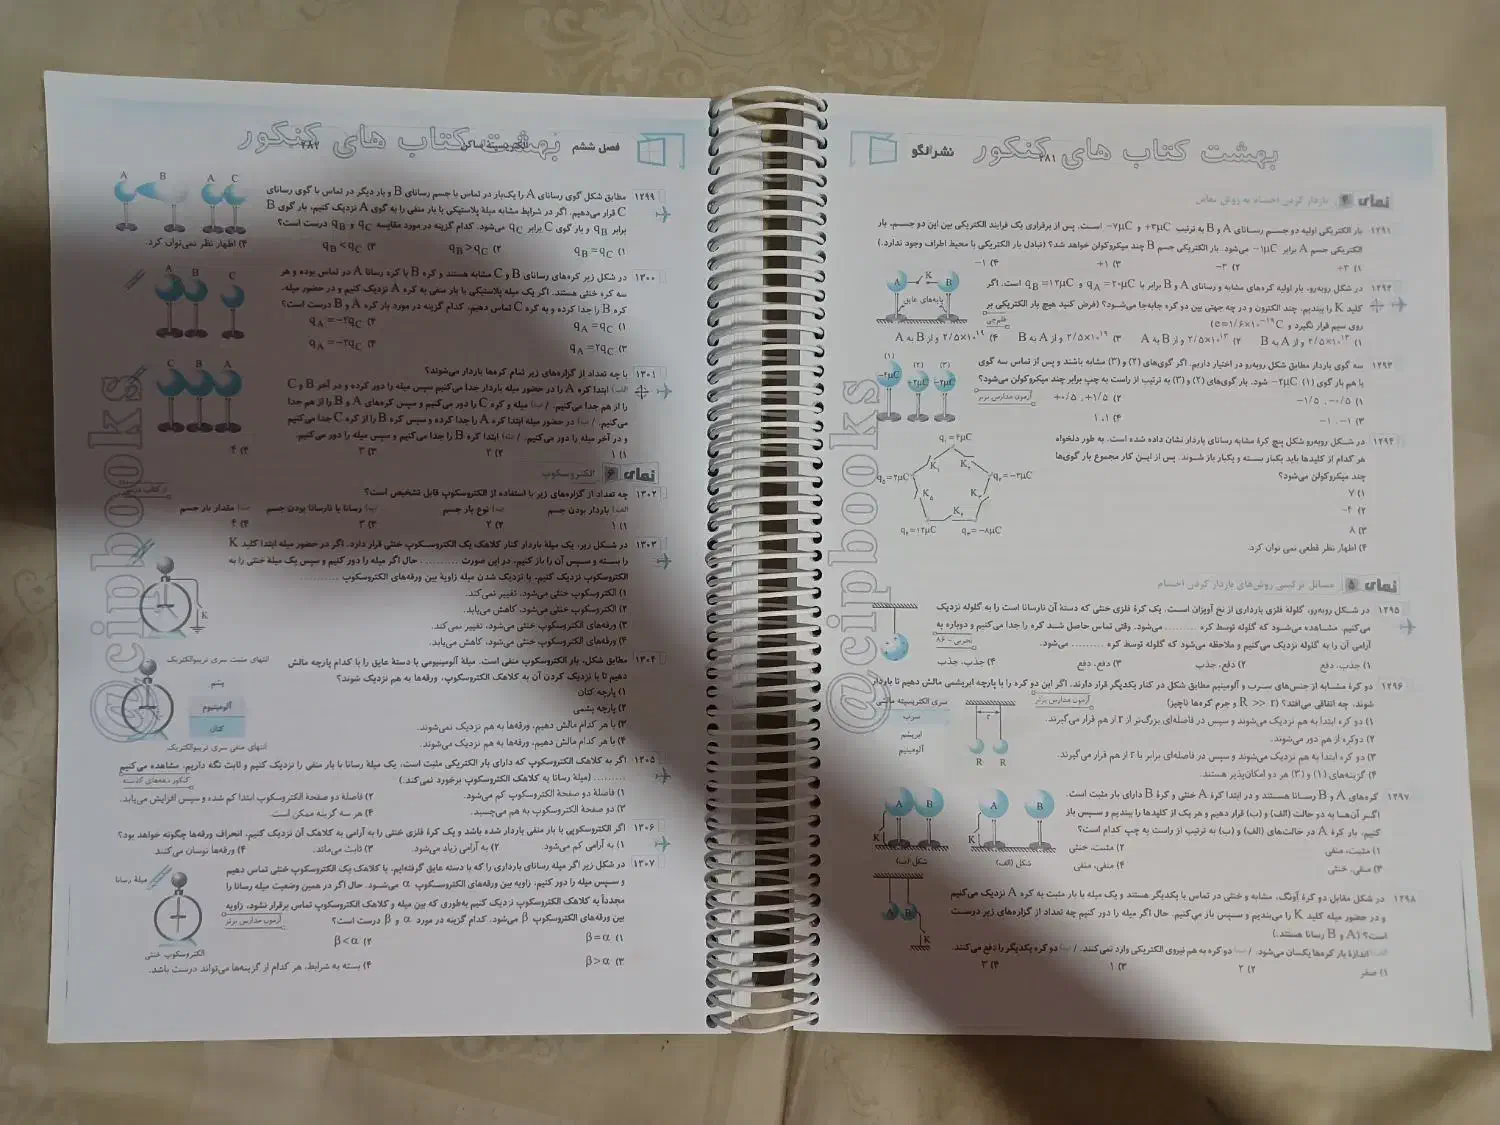 بهشت کتاب های کنکور
نشرالگو
۲۸۱
نمای ۴ باردار کردن اجسام به روش تماس
۱۲۹۱ بار الکتریکی اولیه دو جسم رسانای A و B به ترتیب +۳μC و −۷μC است. پس از برقراری یک فرایند الکتریکی بین این دو جسم، بار
الکتریکی جسم A برابر −۱μC می‌شود. بار الکتریکی جسم B چند میکروکولن خواهد شد؟ (تبادل بار الکتریکی با محیط اطراف وجود ندارد.)
۱) +۳ ۲) −۳ ۳) +۱ ۴) −۱
۱۲۹۲ در شکل روبه‌رو، بار اولیه کره‌های مشابه و رسانای A و B برابر با qA=۲۰μC و qB=۱۲μC است. اگر
کلید K را ببندیم، چند الکترون و در چه جهتی بین دو کره جابه‌جا می‌شود؟ (فرض کنید هیچ بار الکتریکی بر
روی سیم قرار نگیرد و e=۱/۶×۱۰⁻¹⁹C)
قلم‌چی
A K B
پایه‌های عایق
۱) ۲/۵×۱۰¹³ و از A به B ۲) ۲/۵×۱۰¹³ و از B به A ۳) ۲/۵×۱۰¹⁹ و از A به B ۴) ۲/۵×۱۰¹⁹ و از B به A
۱۲۹۳ سه گوی باردار مطابق شکل روبه‌رو در اختیار داریم. اگر گوی‌های (۲) و (۳) مشابه باشند و پس از تماس سه گوی
با هم بار گوی (۱) −۲μC شود. بار گوی‌های (۲) و (۳) به ترتیب از راست به چپ برابر چند میکروکولن می‌شود؟
آزمون مدارس برتر
(۱) (۲) (۳)
۱) −۰/۵ ، −۱/۵ ۲) +۱/۵ ، +۰/۵
۳) −۱ ، −۱ ۴) ۱ ، ۱
۱۲۹۴ در شکل روبه‌رو شکل پنج کرهٔ مشابه رسانای باردار نشان داده شده است. به طور دلخواه
هر کدام از کلیدها باید یکبار بسته و یکبار باز شوند. پس از این کار مجموع بار گوی‌ها
چند میکروکولن می‌شود؟
۱) ۷
۲) −۴
۳) ۸
۴) اظهار نظر قطعی نمی توان کرد.
نمای ۵ مسائل ترکیبی روش‌های باردار کردن اجسام
۱۲۹۵ در شکل روبه‌رو، گلوله فلزی بارداری از نخ آویزان است. یک کرهٔ فلزی خنثی که دستهٔ آن نارسانا است را به گلوله نزدیک
می‌کنیم. مشاهده می‌شود که گلوله توسط کره .......... می‌شود. وقتی تماس حاصل شد کره را جدا می‌کنیم و دوباره به
آرامی آن را به گلوله نزدیک می‌کنیم و ملاحظه می‌شود که گلوله توسط کره .......... می‌شود.
تجربی - ۸۶
۱) جذب، دفع ۲) دفع، جذب ۳) دفع، دفع ۴) جذب، جذب
۱۲۹۶ دو کرهٔ مشابه از جنس‌های سرب و آلومینیم مطابق شکل در کنار یکدیگر قرار دارند. اگر این دو کره را با پارچه ابریشمی مالش دهیم تا باردار
شوند، چه اتفاقی می‌افتد؟ (R >> r و جرم کره‌ها ناچیز)
آزمون مدارس برتر
سری الکتریسیته مالشی
سرب
ابریشم
آلومینیم
r
R R
۱) دو کره ابتدا به هم نزدیک می‌شوند و سپس در فاصله‌ای بزرگ‌تر از r از هم قرار می‌گیرند.
۲) دوکره از هم دور می‌شوند.
۳) دو کره ابتدا به هم نزدیک می‌شوند و سپس در فاصله‌ای برابر با r از هم قرار می‌گیرند.
۴) گزینه‌های (۱) و (۳) هر دو امکان‌پذیر هستند.
۱۲۹۷ کره‌های A و B رسانا هستند و در ابتدا کرهٔ A خنثی و کرهٔ B دارای بار مثبت است.
اگر آن‌ها به دو حالت (الف) و (ب) قرار دهیم و هر یک از کلیدها را ببندیم و سپس باز
کنیم، بار کرهٔ A در حالت‌های (الف) و (ب) به ترتیب از راست به چپ کدام است؟
A B A B
K K
شکل (ب) شکل (الف)
۱) مثبت، منفی ۲) مثبت، خنثی
۳) منفی، خنثی ۴) منفی، منفی
۱۲۹۸ در شکل مقابل دو کرهٔ آونگ، مشابه و خنثی در تماس با یکدیگر هستند و یک میله با بار مثبت به کره A نزدیک می‌کنیم
و در حضور میله کلید K را می‌بندیم و سپس باز می‌کنیم. حال اگر میله را دور کنیم چه تعداد از گزاره‌های زیر درست
است؟ (A و B رسانا هستند.)
A B
K
الف) اندازهٔ بار کره‌ها یکسان می‌شود. / ب) دو کره به هم نیروی الکتریکی وارد نمی‌کنند. / پ) دو کره یکدیگر را دفع می‌کنند.
۱) صفر ۲) ۲ ۳) ۱ ۴) ۳
@cipbooks
بهشت کتاب های کنکور
فصل ششم
الکتریسیتهٔ ساکن
۲۸۲
۱۲۹۹ مطابق شکل گوی رسانای A را یک‌بار در تماس با جسم رسانای B و بار دیگر در تماس با گوی رسانای
C قرار می‌دهیم. اگر در شرایط مشابه میلهٔ پلاستیکی با بار منفی را به گوی A نزدیک کنیم، بار گوی B
برابر qB و بار گوی C برابر qC می‌شود. کدام گزینه در مورد مقایسه qC و qB درست است؟
A B A C
۱) qB=qC ۲) qB>qC ۳) qB<qC ۴) اظهار نظر نمی‌توان کرد.
۱۳۰۰ در شکل زیر کره‌های رسانای B و C مشابه هستند و کره B با کره رسانا A در تماس بوده و هر
سه کره خنثی هستند. اگر یک میله پلاستیکی با بار منفی به کره A نزدیک کنیم و در حضور میله،
کره B را جدا کرده و به کره C تماس دهیم، کدام گزینه در مورد بار کره A و B درست است؟
A B C
۱) qA=qC ۲) qA=−۲qC
۳) qA=۲qC ۴) qA=−۲qC
۱۳۰۱ با چه تعداد از گزاره‌های زیر تمام کره‌ها باردار می‌شوند؟
الف) ابتدا کره A را در حضور میله باردار جدا می‌کنیم سپس میله را دور کرده و در آخر B و C
را از هم جدا می‌کنیم. / ب) میله و کره C را دور می‌کنیم و سپس کره‌های A و B را از هم جدا
می‌کنیم. / پ) در حضور میله ابتدا کره A را جدا کرده و سپس کره B را از کره C جدا می‌کنیم
و در آخر میله را دور می‌کنیم. / ت) ابتدا کره B را جدا می‌کنیم و سپس میله را دور می‌کنیم.
C B A
۱) ۱ ۲) ۲ ۳) ۳ ۴) ۴
نمای ۶ الکتروسکوپ
۱۳۰۲ چه تعداد از گزاره‌های زیر با استفاده از الکتروسکوپ قابل تشخیص است؟
الف) باردار بودن جسم ب) نوع بار جسم پ) رسانا یا نارسانا بودن جسم ت) مقدار بار جسم
۱) ۱ ۲) ۲ ۳) ۳ ۴) ۴
۱۳۰۳ در شکل زیر، یک میلهٔ باردار کنار کلاهک یک الکتروسکوپ خنثی قرار دارد. اگر در حضور میله ابتدا کلید K
را بسته و سپس آن را باز کنیم، در این صورت .......... حال اگر میله را دور کنیم و سپس یک میلهٔ خنثی را به
الکتروسکوپ نزدیک کنیم، با نزدیک شدن میله زاویهٔ بین ورقه‌های الکتروسکوپ ..........
K
۱) الکتروسکوپ خنثی می‌شود، تغییر نمی‌کند.
۲) الکتروسکوپ خنثی می‌شود، کاهش می‌یابد.
۳) ورقه‌های الکتروسکوپ خنثی می‌شود، تغییر نمی‌کند.
۴) ورقه‌های الکتروسکوپ خنثی می‌شود، کاهش می‌یابد.
۱۳۰۴ مطابق شکل، بار الکتروسکوپ منفی است. میلهٔ آلومینیومی با دستهٔ عایق را با کدام پارچه مالش
دهیم تا با نزدیک کردن آن به کلاهک الکتروسکوپ، ورقه‌ها به هم نزدیک شوند؟
انتهای مثبت سری تریبوالکتریک
پشم
آلومینیوم
کتان
انتهای منفی سری تریبوالکتریک
۱) پارچه کتان
۲) پارچه پشمی
۳) با هر کدام مالش دهیم، ورقه‌ها به هم نزدیک نمی‌شوند.
۴) با هر کدام مالش دهیم، ورقه‌ها به هم نزدیک می‌شوند.
۱۳۰۵ اگر به کلاهک الکتروسکوپ که دارای بار الکتریکی مثبت است، یک میلهٔ رسانا با بار منفی را نزدیک کنیم و ثابت نگه داریم، مشاهده می‌کنیم
.......... (میلهٔ رسانا به کلاهک الکتروسکوپ برخورد نمی‌کند.)
کنکور دهه‌های گذشته
۱) فاصلهٔ دو صفحهٔ الکتروسکوپ کم می‌شود. ۲) فاصلهٔ دو صفحهٔ الکتروسکوپ ابتدا کم شده و سپس افزایش می‌یابد.
۳) دو صفحهٔ الکتروسکوپ به هم می‌چسبد. ۴) هر سه گزینه ممکن است.
۱۳۰۶ اگر الکتروسکوپی با بار منفی باردار شده باشد و یک کرهٔ فلزی خنثی را به آرامی به کلاهک آن نزدیک کنیم، انحراف ورقه‌ها چگونه خواهد بود؟
۱) به آرامی کم می‌شود. ۲) به آرامی زیاد می‌شود. ۳) ثابت می‌ماند. ۴) ورقه‌ها نوسان می‌کنند.
۱۳۰۷ در شکل زیر اگر میله رسانای بارداری را که با دسته عایق گرفته‌ایم، با کلاهک یک الکتروسکوپ خنثی تماس دهیم
و سپس میله را دور کنیم، زاویه بین ورقه‌های الکتروسکوپ α می‌شود. حال اگر در همین وضعیت میله رسانا را
مجدداً به کلاهک الکتروسکوپ نزدیک کنیم به‌طوری که بین میله و کلاهک الکتروسکوپ تماس برقرار نشود، زاویه
بین ورقه‌های الکتروسکوپ β می‌شود. کدام گزینه در مورد α و β درست است؟
آزمون مدارس برتر
میلهٔ رسانا
الکتروسکوپ خنثی
۱) β=α ۲) β<α
۳) β>α ۴) بسته به شرایط، هر کدام از گزینه‌ها می‌تواند درست باشد.
@cipbooks